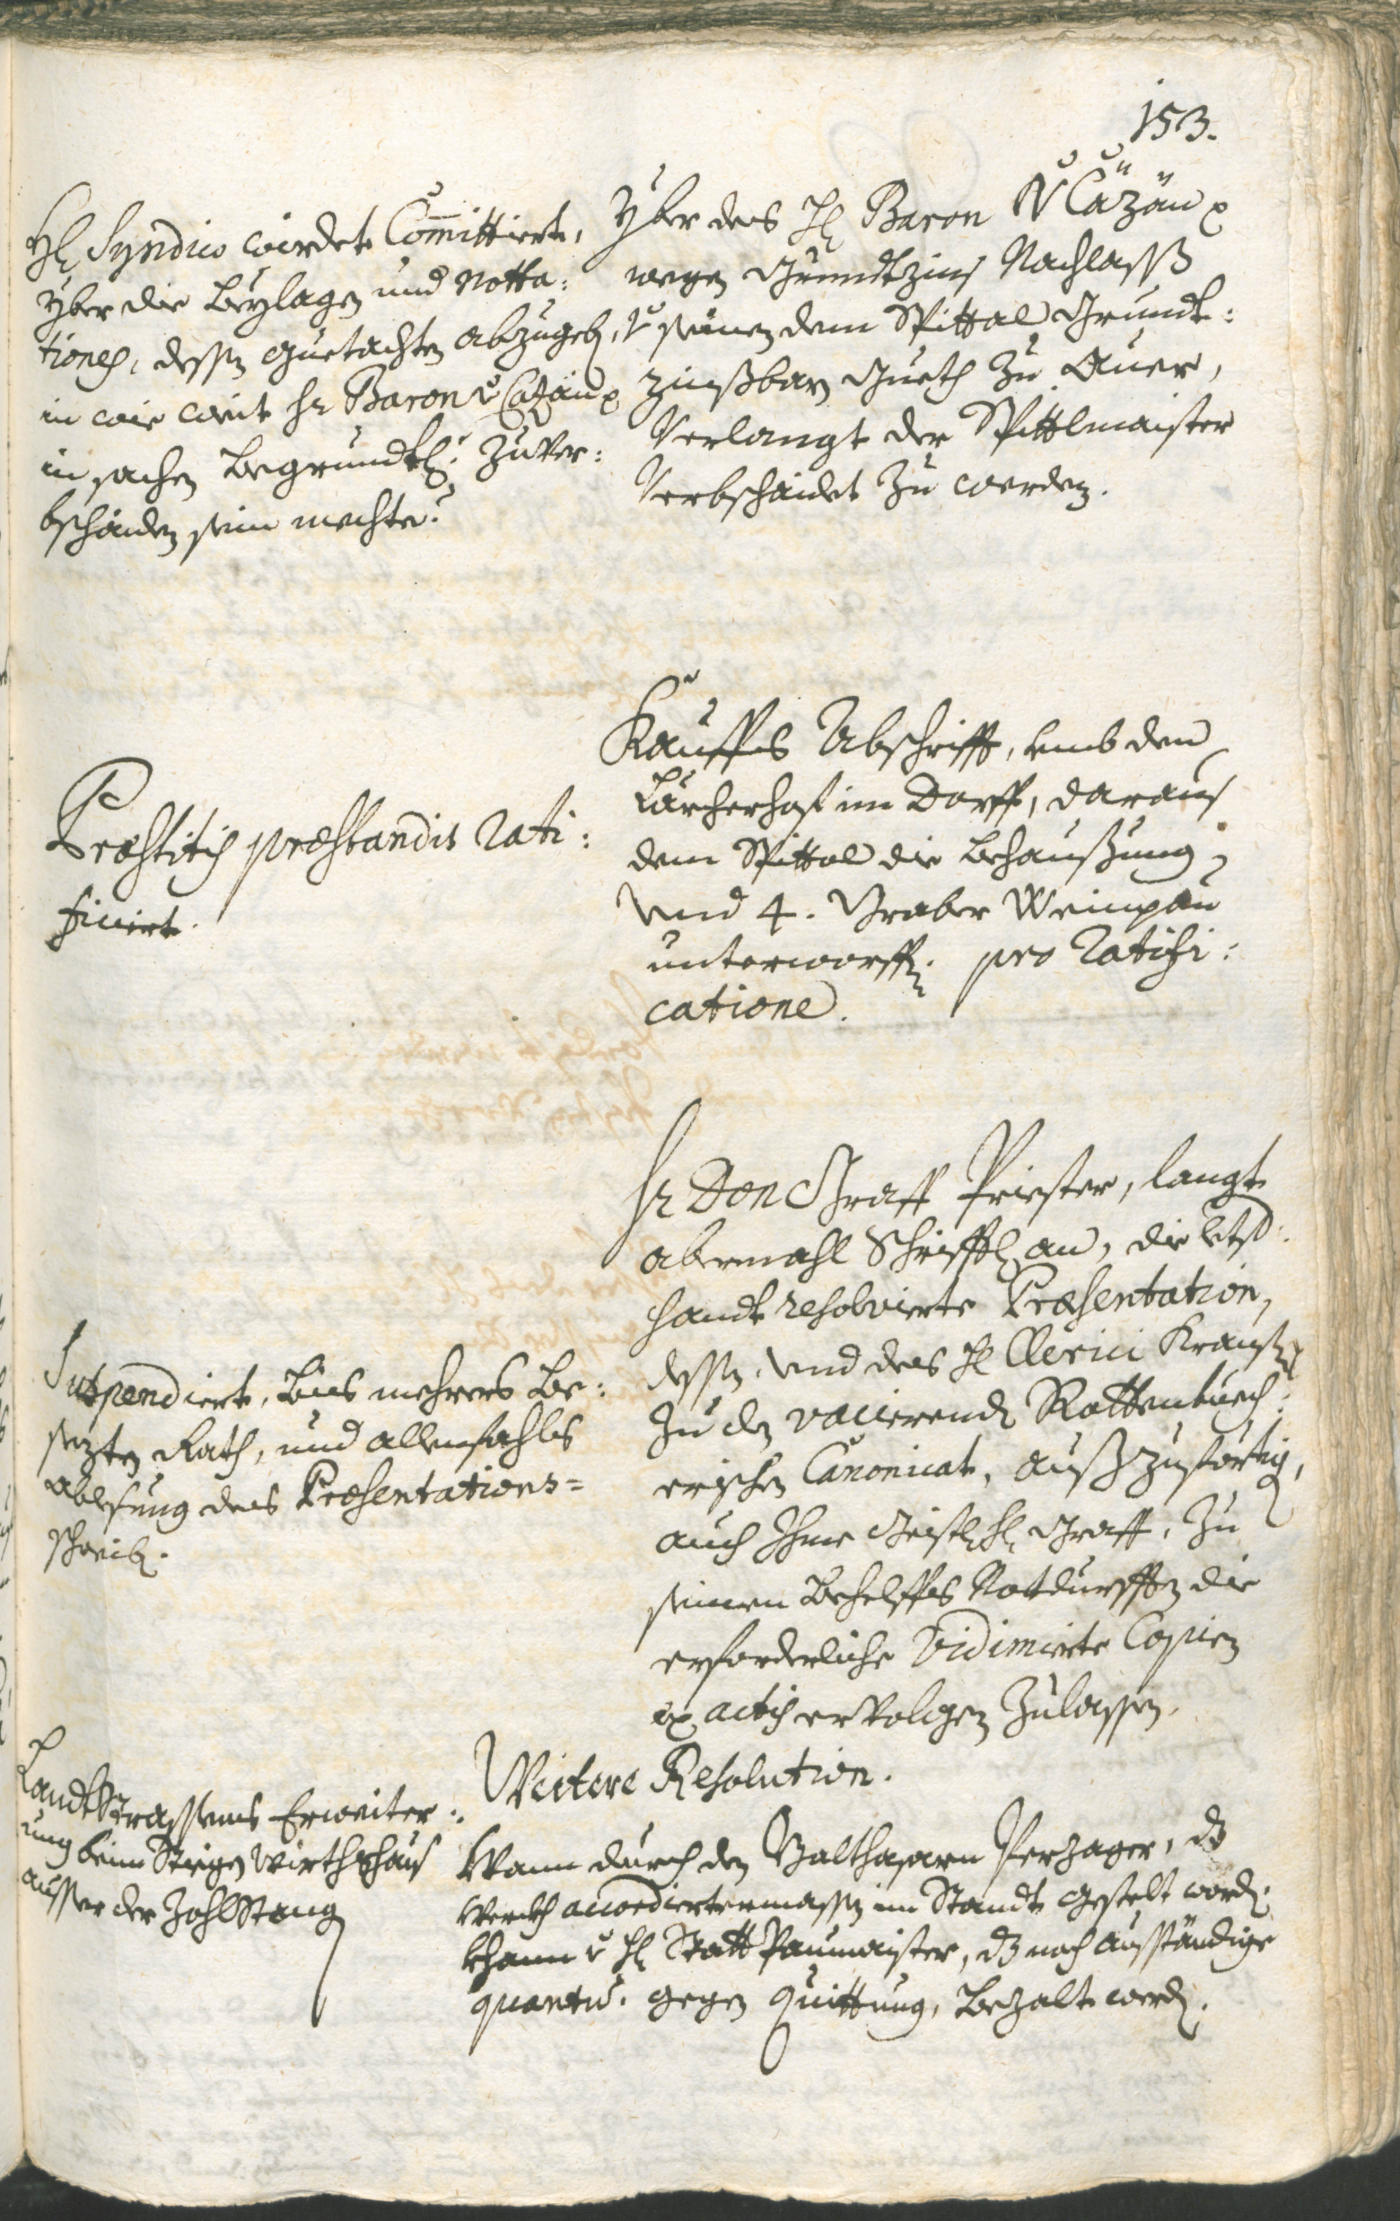 153.
Hl Syndico wirdet Committiert,
yber die Beylagen und Notta:
tiones, dessen Guetachten abzugeb,
in wie weit Hr Baron v Cazan
in sachen Begrundtl: zuver:
bschaiden sein mechte?
Yber des Hl Baron v Cazan
wegen Grundtzins Nachlass
v seinen dem Spittal Grundt:
zinssbarn Gueth zu Auer,
Verlangt der Spittlmaister
Verbschaidet zu werden.
Præstitis præstandis Rati:
ficiert.
Kauffs Abschrifft, umb den
Lärcherhof im Dorff, daraus
dem Spittal die Behaussung
und 4. Graber Weinpau
unterworffen. pro Ratifi:
catione.
Suspendiert, bis mehrers Be:
sezten Rath, und allenfahls
ablesung des Præsentations=
schreib.
Hr Don Graff Priester, langt
abermahl Schrifftl an, die letst:
handt resolvierte Præsentation,
dessen, und des Hl Clerici
zu den vacierendt Rottenbuech:
erischen Canonicat, ausszufertig,
auch Ihme Geistl Hl Graff, zu
seinen Behelffs Notdurfften die
erforderliche Vidimierte Copien
ex actis ervolgen zulassen.
Weitere Resolution.
LandtStrassens Erweiter:
ung beim Stigen Wirthshaus
ausser der Zohlstang
Wann durch den Balthasarn Perzager, dz
Werch accordiertermassen im Standt gestelt word:
khann v Hl Statt Paumaister, dz noch ausständige
quantu. gegen Quittung, Bezalt werd.